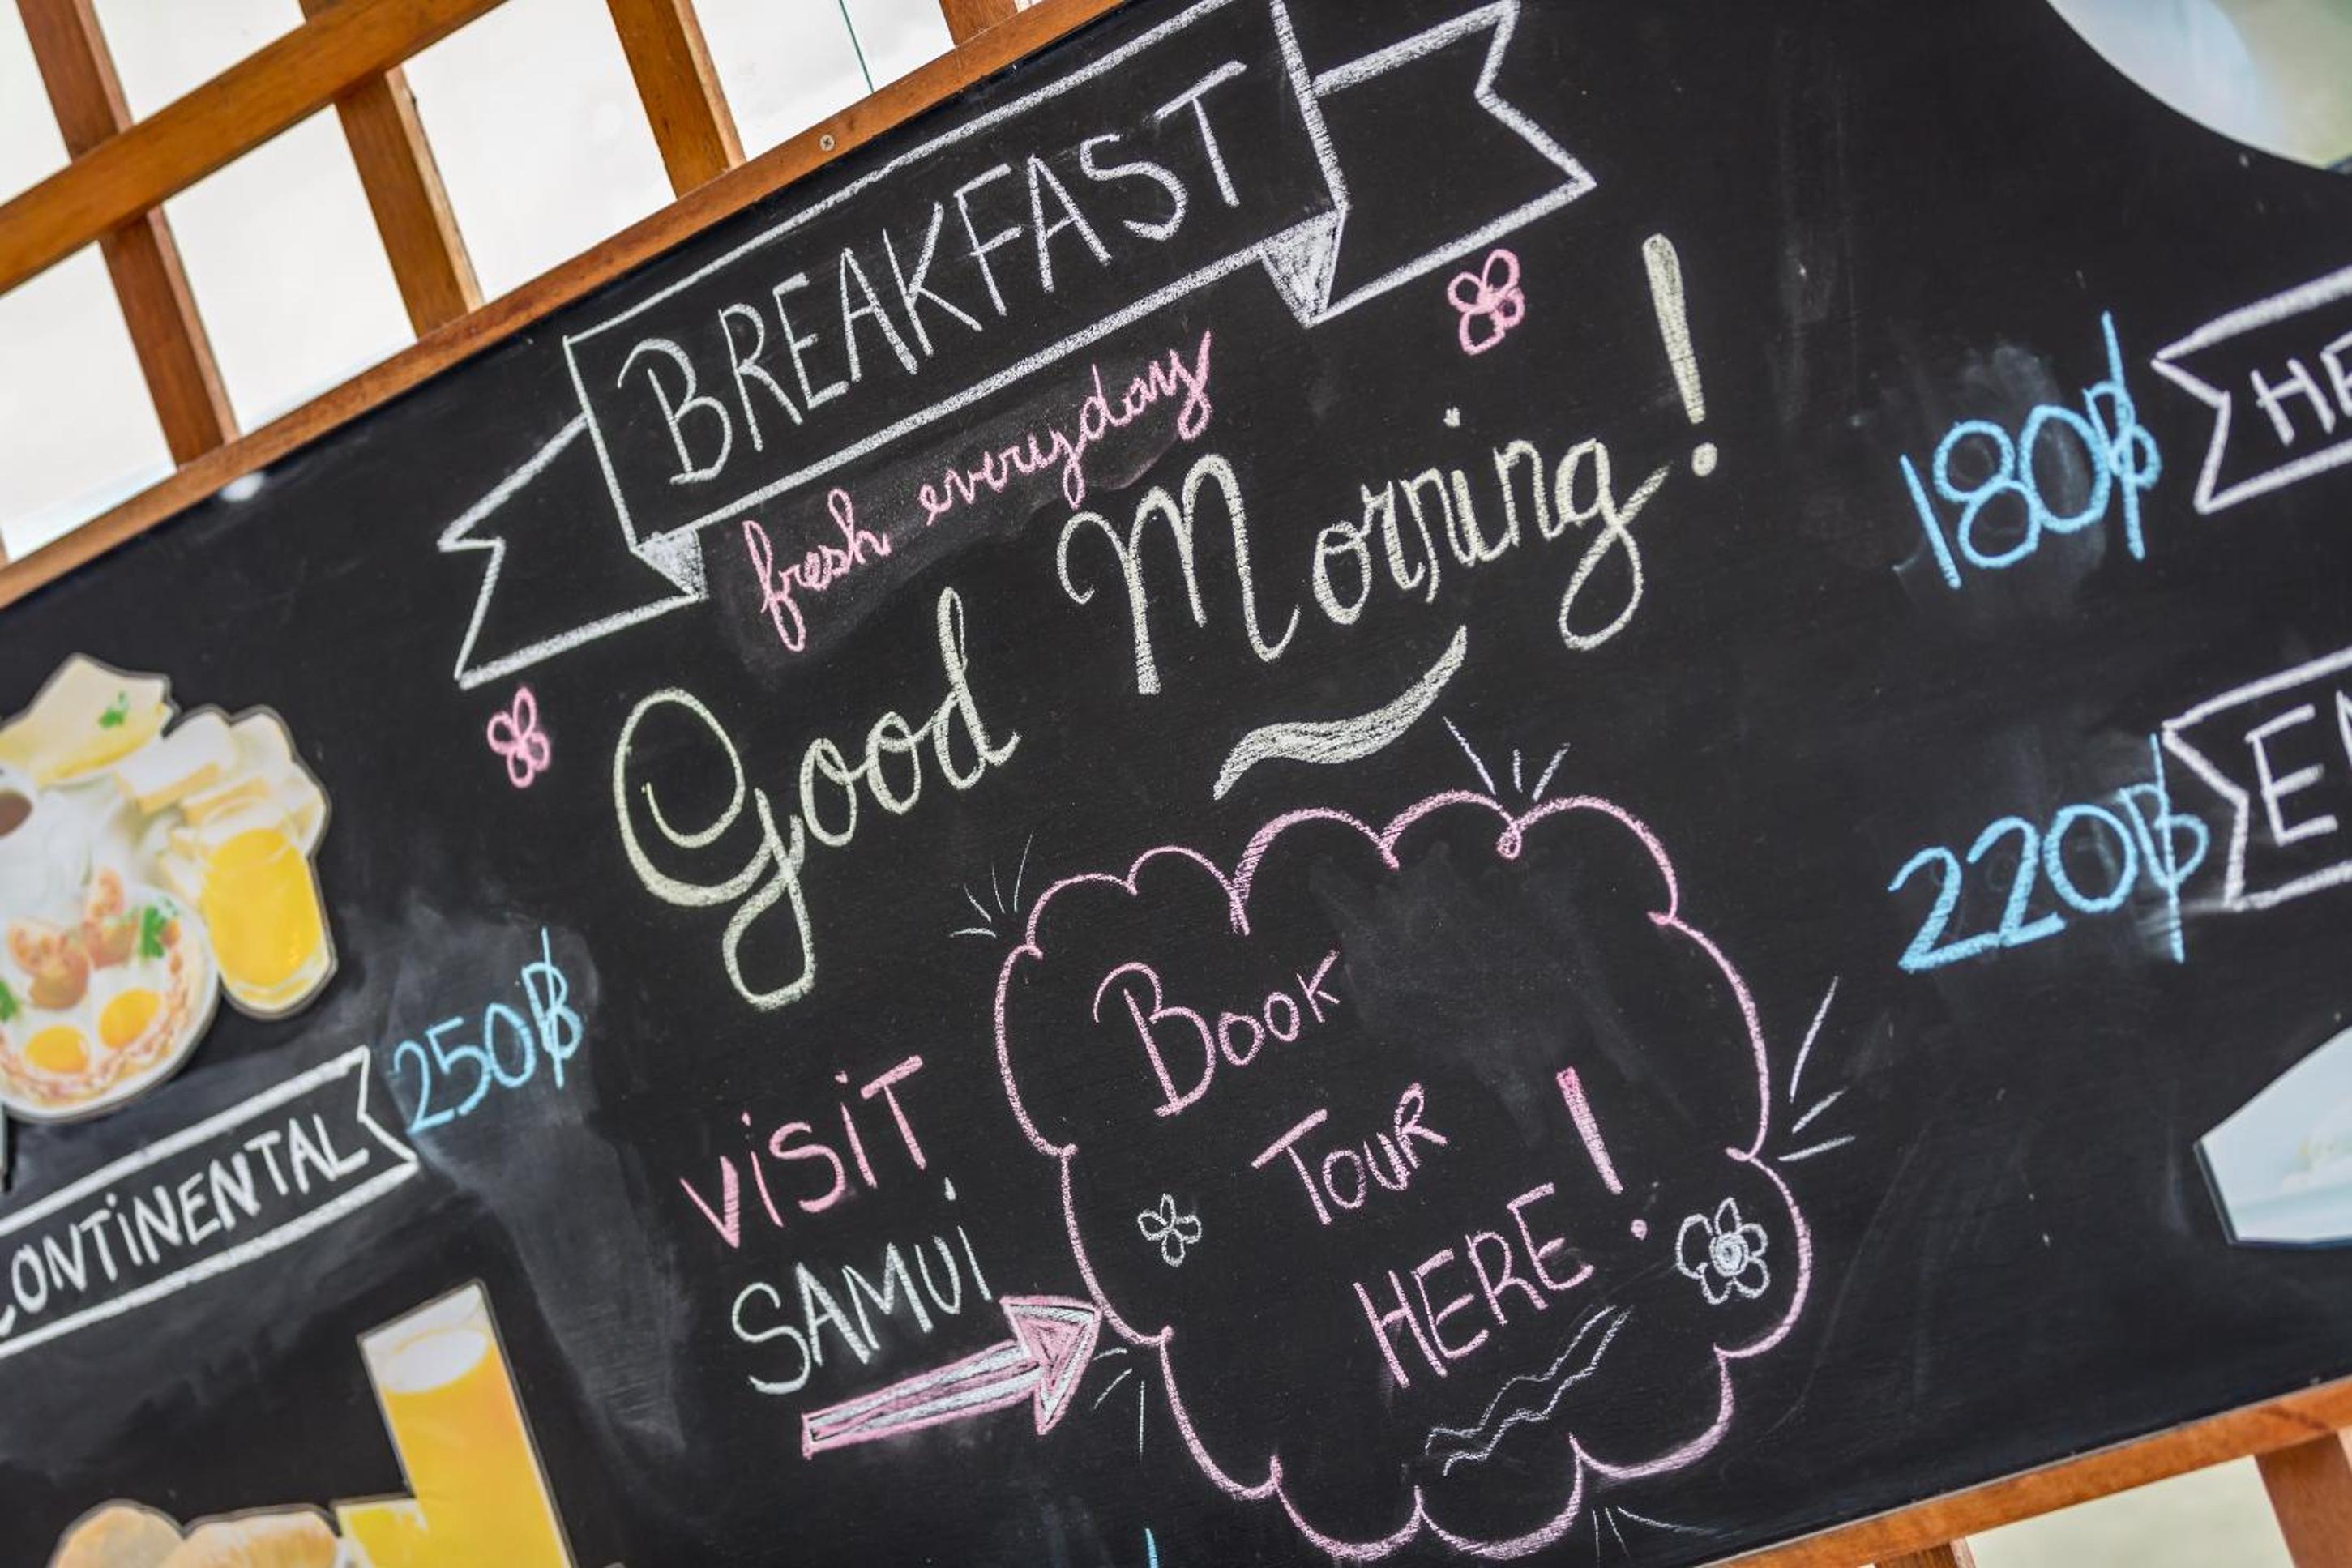 BREAKFAST
fresh everyday
Good Morning!
250฿
CONTINENTAL
VISIT
SAMUI
BOOK
TOUR
HERE!
180฿
220฿